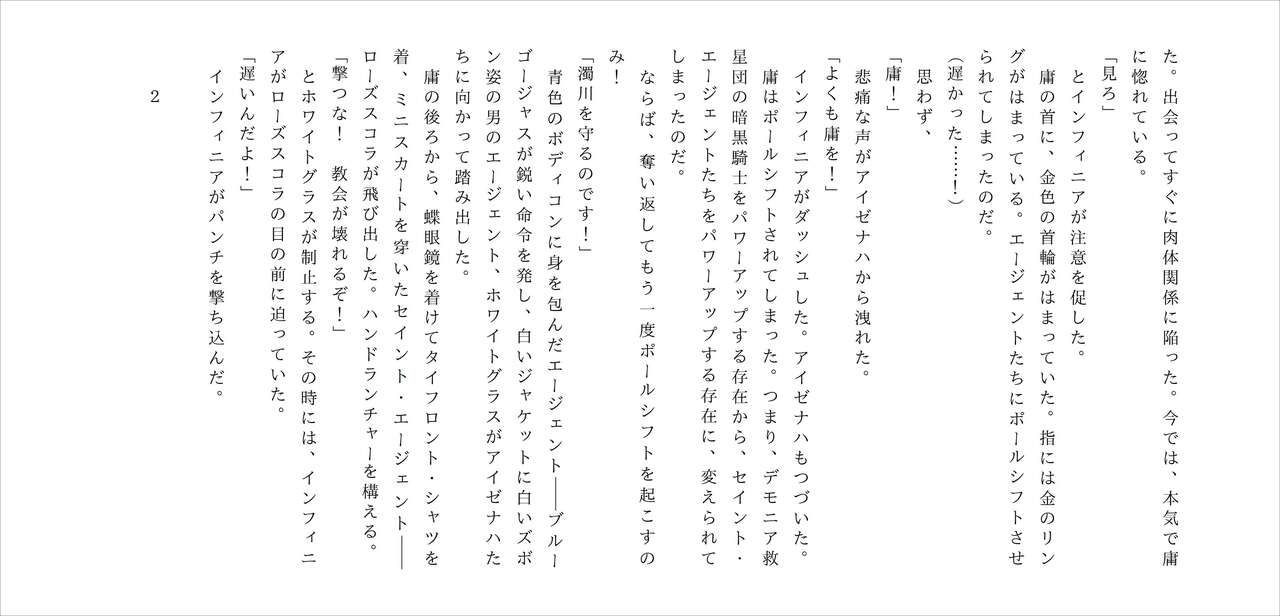 た。出会ってすぐに肉体関係に陥った。今では、本気で庸
に惚れている。
「見ろ」
とインフィニアが注意を促した。
庸の首に、金色の首輪がはまっていた。指には金のリン
グがはまっている。エージェントたちにポールシフトさせ
られてしまったのだ。
思わず、
(遅かった……！)
「庸！」
悲痛な声がアイゼナハから洩れた。
「よくも庸を！」
インフィニアがダッシュした。アイゼナハもつづいた。
庸はポールシフトされてしまった。つまり、デモニア救
星団の暗黒騎士をパワーアップする存在から、セイント・
エージェントたちをパワーアップする存在に、変えられて
しまったのだ。
ならば、奪い返してもう一度ポールシフトを起こすの
み！
「濁川を守るのです！」
青色のボディコンに身を包んだエージェント――ブルー
ゴージャスが鋭い命令を発し、白いジャケットに白いズボ
ン姿の男のエージェント、ホワイトグラスがアイゼナハた
ちに向かって踏み出した。
庸の後ろから、蝶眼鏡を着けてタイフロント・シャツを
着、ミニスカートを穿いたセイント・エージェント――
ローズスコラが飛び出した。ハンドランチャーを構える。
「撃つな！　教会が壊れるぞ！」
とホワイトグラスが制止する。その時には、インフィニ
アがローズスコラの目の前に迫っていた。
「遅いんだよ！」
インフィニアがパンチを撃ち込んだ。
2